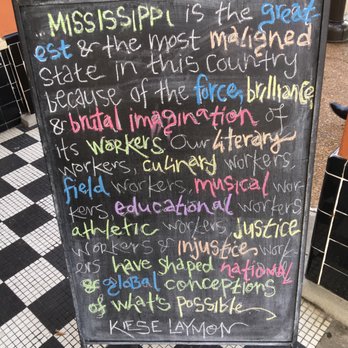 ...MISSISSIPPI is the great
est & the most maligned
state in this country
because of the force, brilliance,
& brutal imagination of
its workers. Our literary
workers, culinary workers,
field workers, musical wor-
kers, educational workers,
athletic workers, justice
workers & injustice work-
ers have shaped national
& global conceptions
of what's possible
KIESE LAYMON